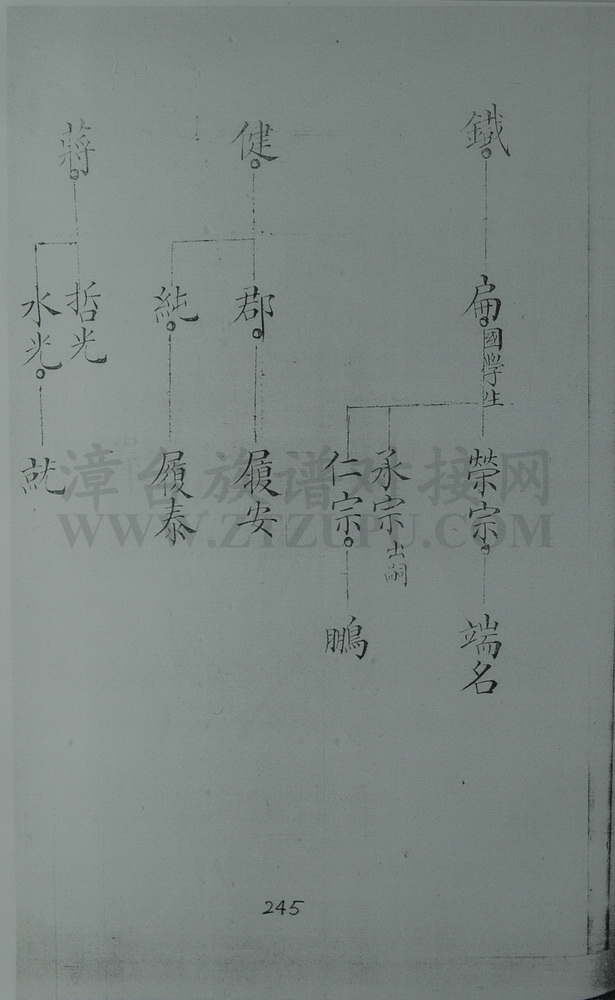 鐵
扁 國學生
榮宗
端名
承宗 出嗣
仁宗
鵬
健
郡
履安
純
履泰
蔣
哲光
水光
就
漳台族谱对接网
WWW.ZTZUPU.COM
245